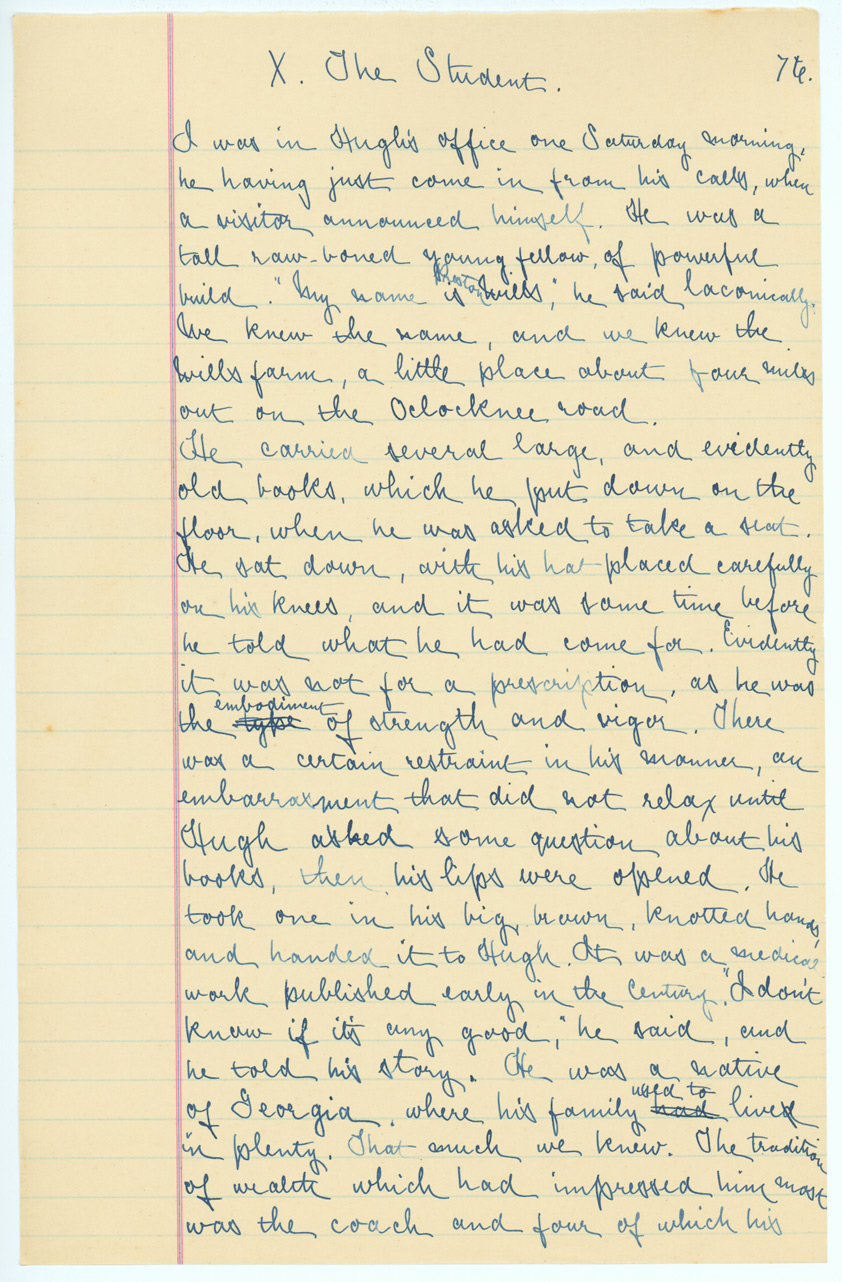 X. The Student. 76.
I was in Hugh's office one Saturday morning,
he having just come in from his calls, when
a visitor announced himself. He was a
tall raw-boned young fellow, of powerful
build. "My name is Preston Wills," he said laconically.
We knew the name, and we knew the
Wills farm, a little place about four miles
out on the Oclocknee road.
He carried several large, and evidently
old books, which he put down on the
floor, when he was asked to take a seat.
He sat down, with his hat placed carefully
on his knees, and it was some time before
he told what he had come for. Evidently
it was not for a prescription, as he was
the embodiment of strength and vigor. There
was a certain restraint in his manner, an
embarrassment that did not relax until
Hugh asked some question about his
books, then his lips were opened. He
took one in his big, brown, knotted hands,
and handed it to Hugh. It was a medical
work published early in the century. "I don't
know if it's any good," he said, and
he told his story. He was a native
of Georgia, where his family used to live
in plenty. That much we knew. The tradition
of wealth which had impressed him most
was the coach and four of which his